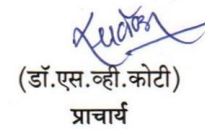 (डॉ.एस.व्ही.कोटी)
प्राचार्य